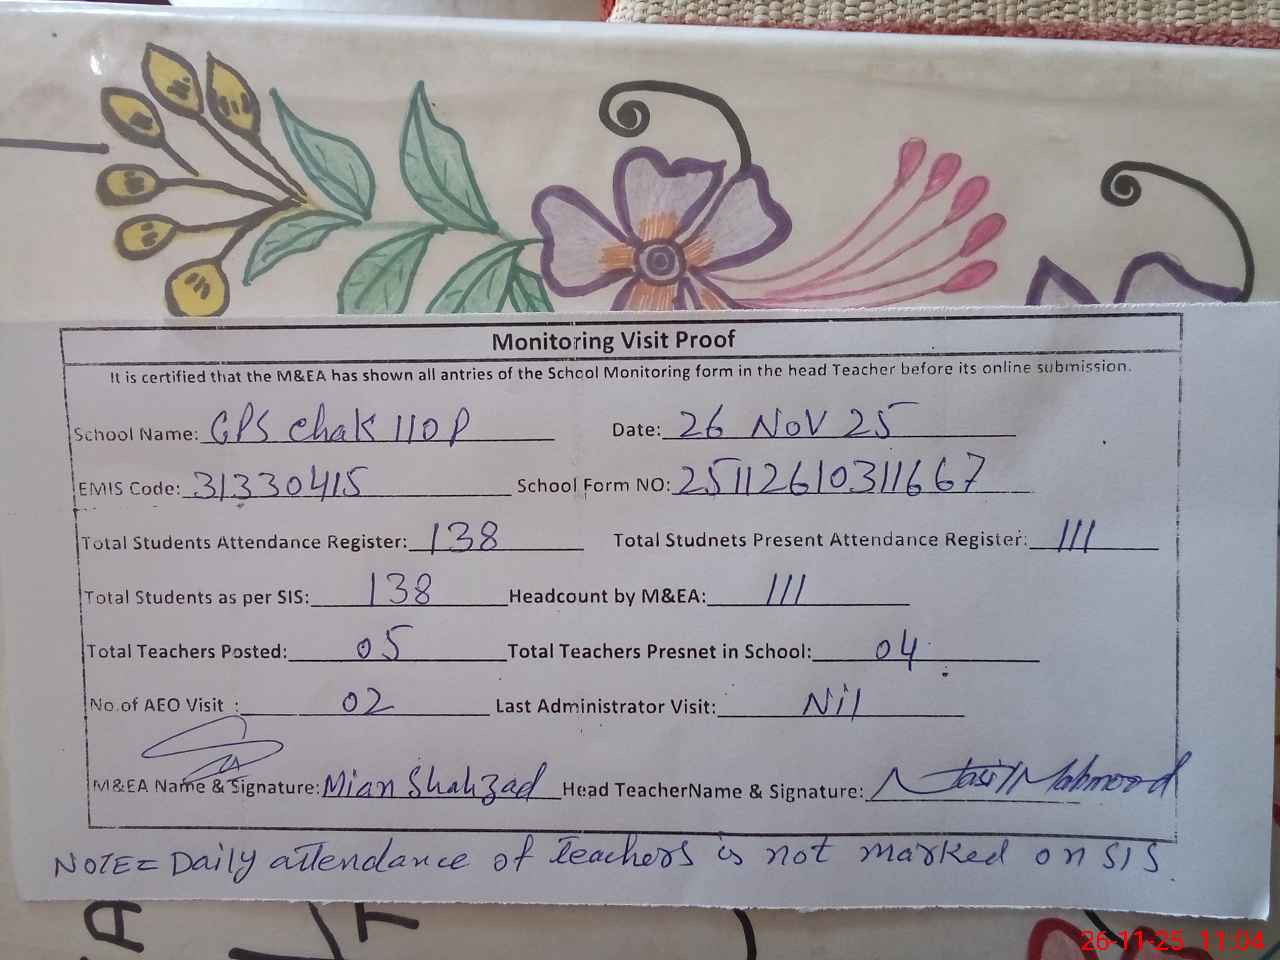 Monitoring Visit Proof
It is certified that the M&EA has shown all antries of the School Monitoring form in the head Teacher before its online submission.
School Name: GPS chak 110P Date: 26 Nov 25
EMIS Code: 31330415 School Form NO: 25112610311667
Total Students Attendance Register: 138 Total Studnets Present Attendance Register: 111
Total Students as per SIS: 138 Headcount by M&EA: 111
Total Teachers Posted: 05 Total Teachers Presnet in School: 04
No.of AEO Visit : 02 Last Administrator Visit: Nil
M&EA Name & Signature: Mian Shahzad Head TeacherName & Signature: Mahmood
NOTE= Daily attendance of teachers is not marked on SIS.
26-11-25 11:04